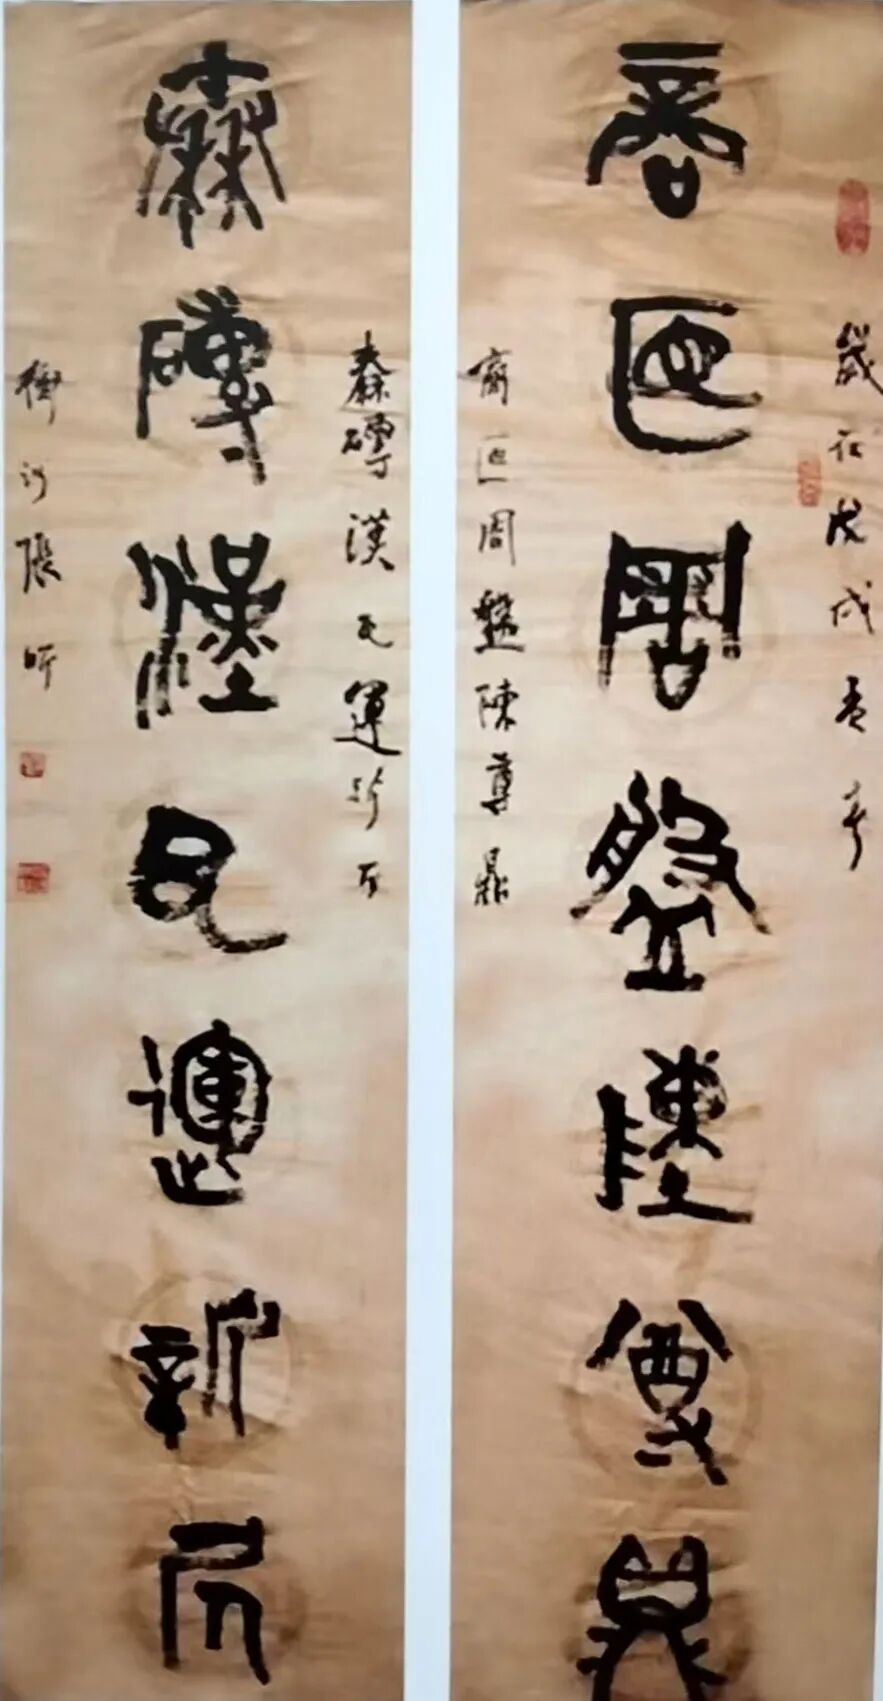 歲在戊戌孟春
商匜周盤陳尊鼎
商匜周盤陳尊鼎
秦磚漢瓦運新斤
秦磚漢瓦運新斤
張昕